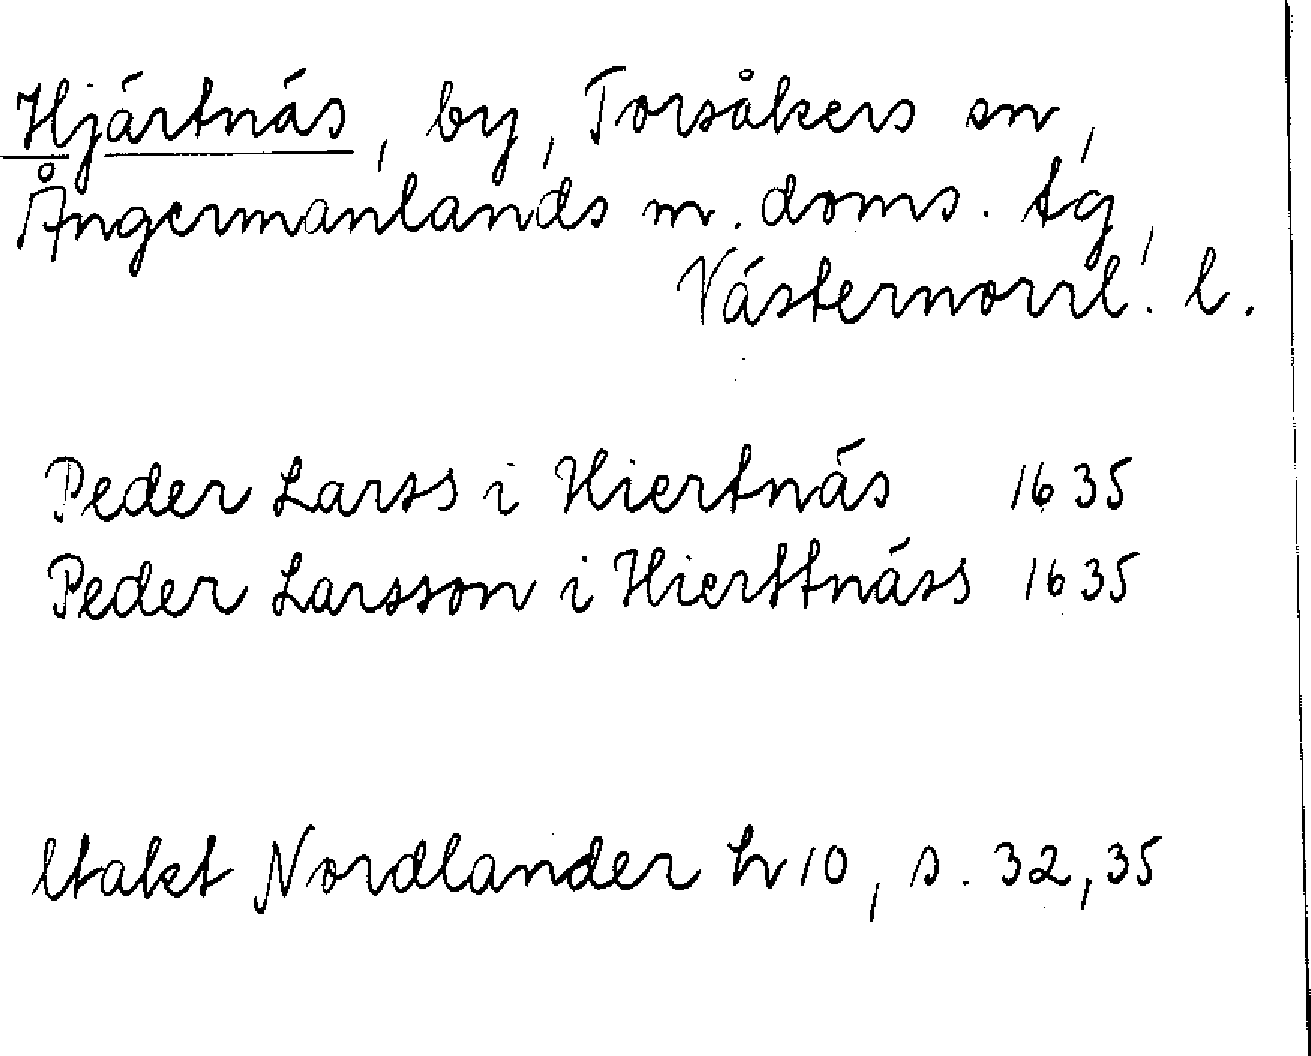 Hjärtnäs, by, Torsåkers sn,
Ångermanlands m. doms. tg,
Västernorrl. l.
Peder Larss i Hiertnäs 1635
Peder Larsson i Hierttnäss 1635
Utakt Nordlander hv 10, s. 32, 35